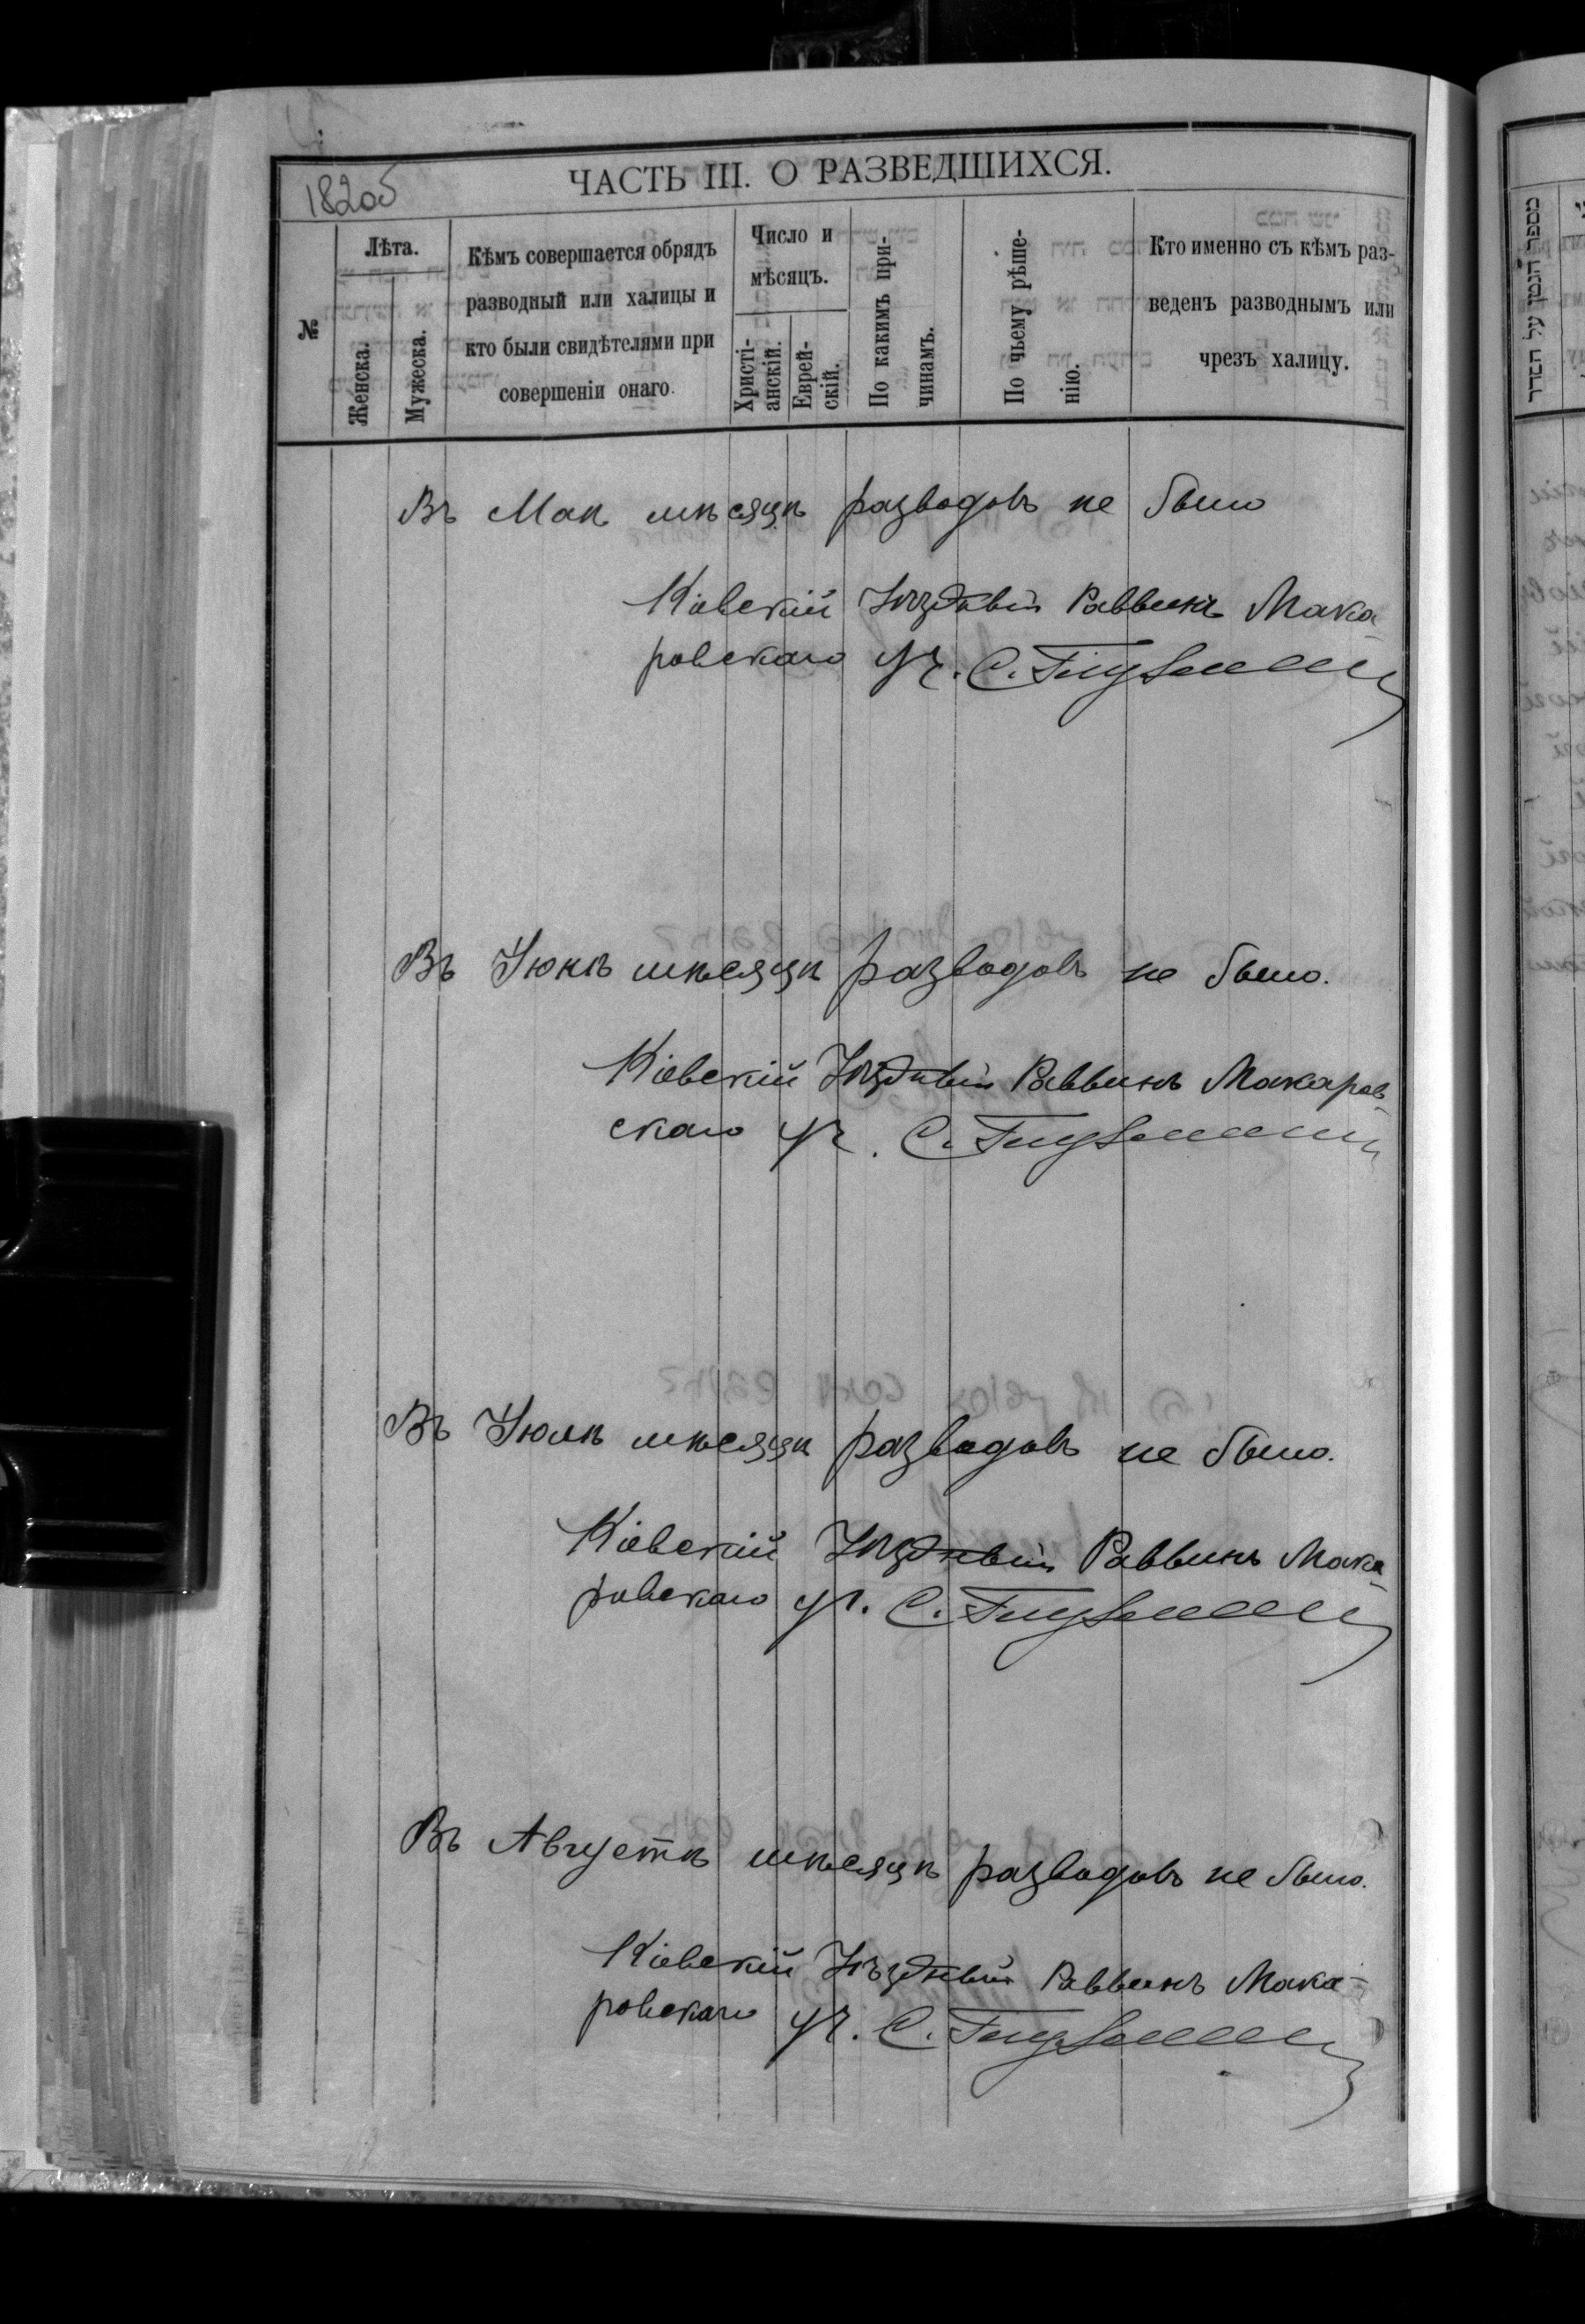 182об
ЧАСТЬ III. О РАЗВЕДШИХСЯ.
№
Лѣта.
Женска.
Мужеска.
Кѣмъ совершается обрядъ
разводный или халицы и
кто были свидѣтелями при
совершеніи онаго.
Число и
мѣсяцъ.
Христі-
анскій.
Еврей-
скій.
По какимъ при-
чинамъ.
По чьему рѣше-
нію.
Кто именно съ кѣмъ раз-
веденъ разводнымъ или
чрезъ халицу.
Въ Маѣ мѣсяцѣ разводовъ не было
Кіевскій Уѣздный Раввинъ Мака-
ровскаго уч. С.
Въ Іюнѣ мѣсяцѣ разводовъ не было.
Кіевскій Уѣздный Раввинъ Макаров-
скаго уч. С.
Въ Іюлѣ мѣсяцѣ разводовъ не было.
Кіевскій Уѣздный Раввинъ Мака-
ровскаго уч. С.
Въ Августѣ мѣсяцѣ разводовъ не было.
Кіевскій Уѣздный Раввинъ Мака-
ровскаго уч. С.